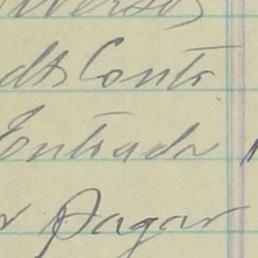 Diversos
Conta
Entrada
r pagar